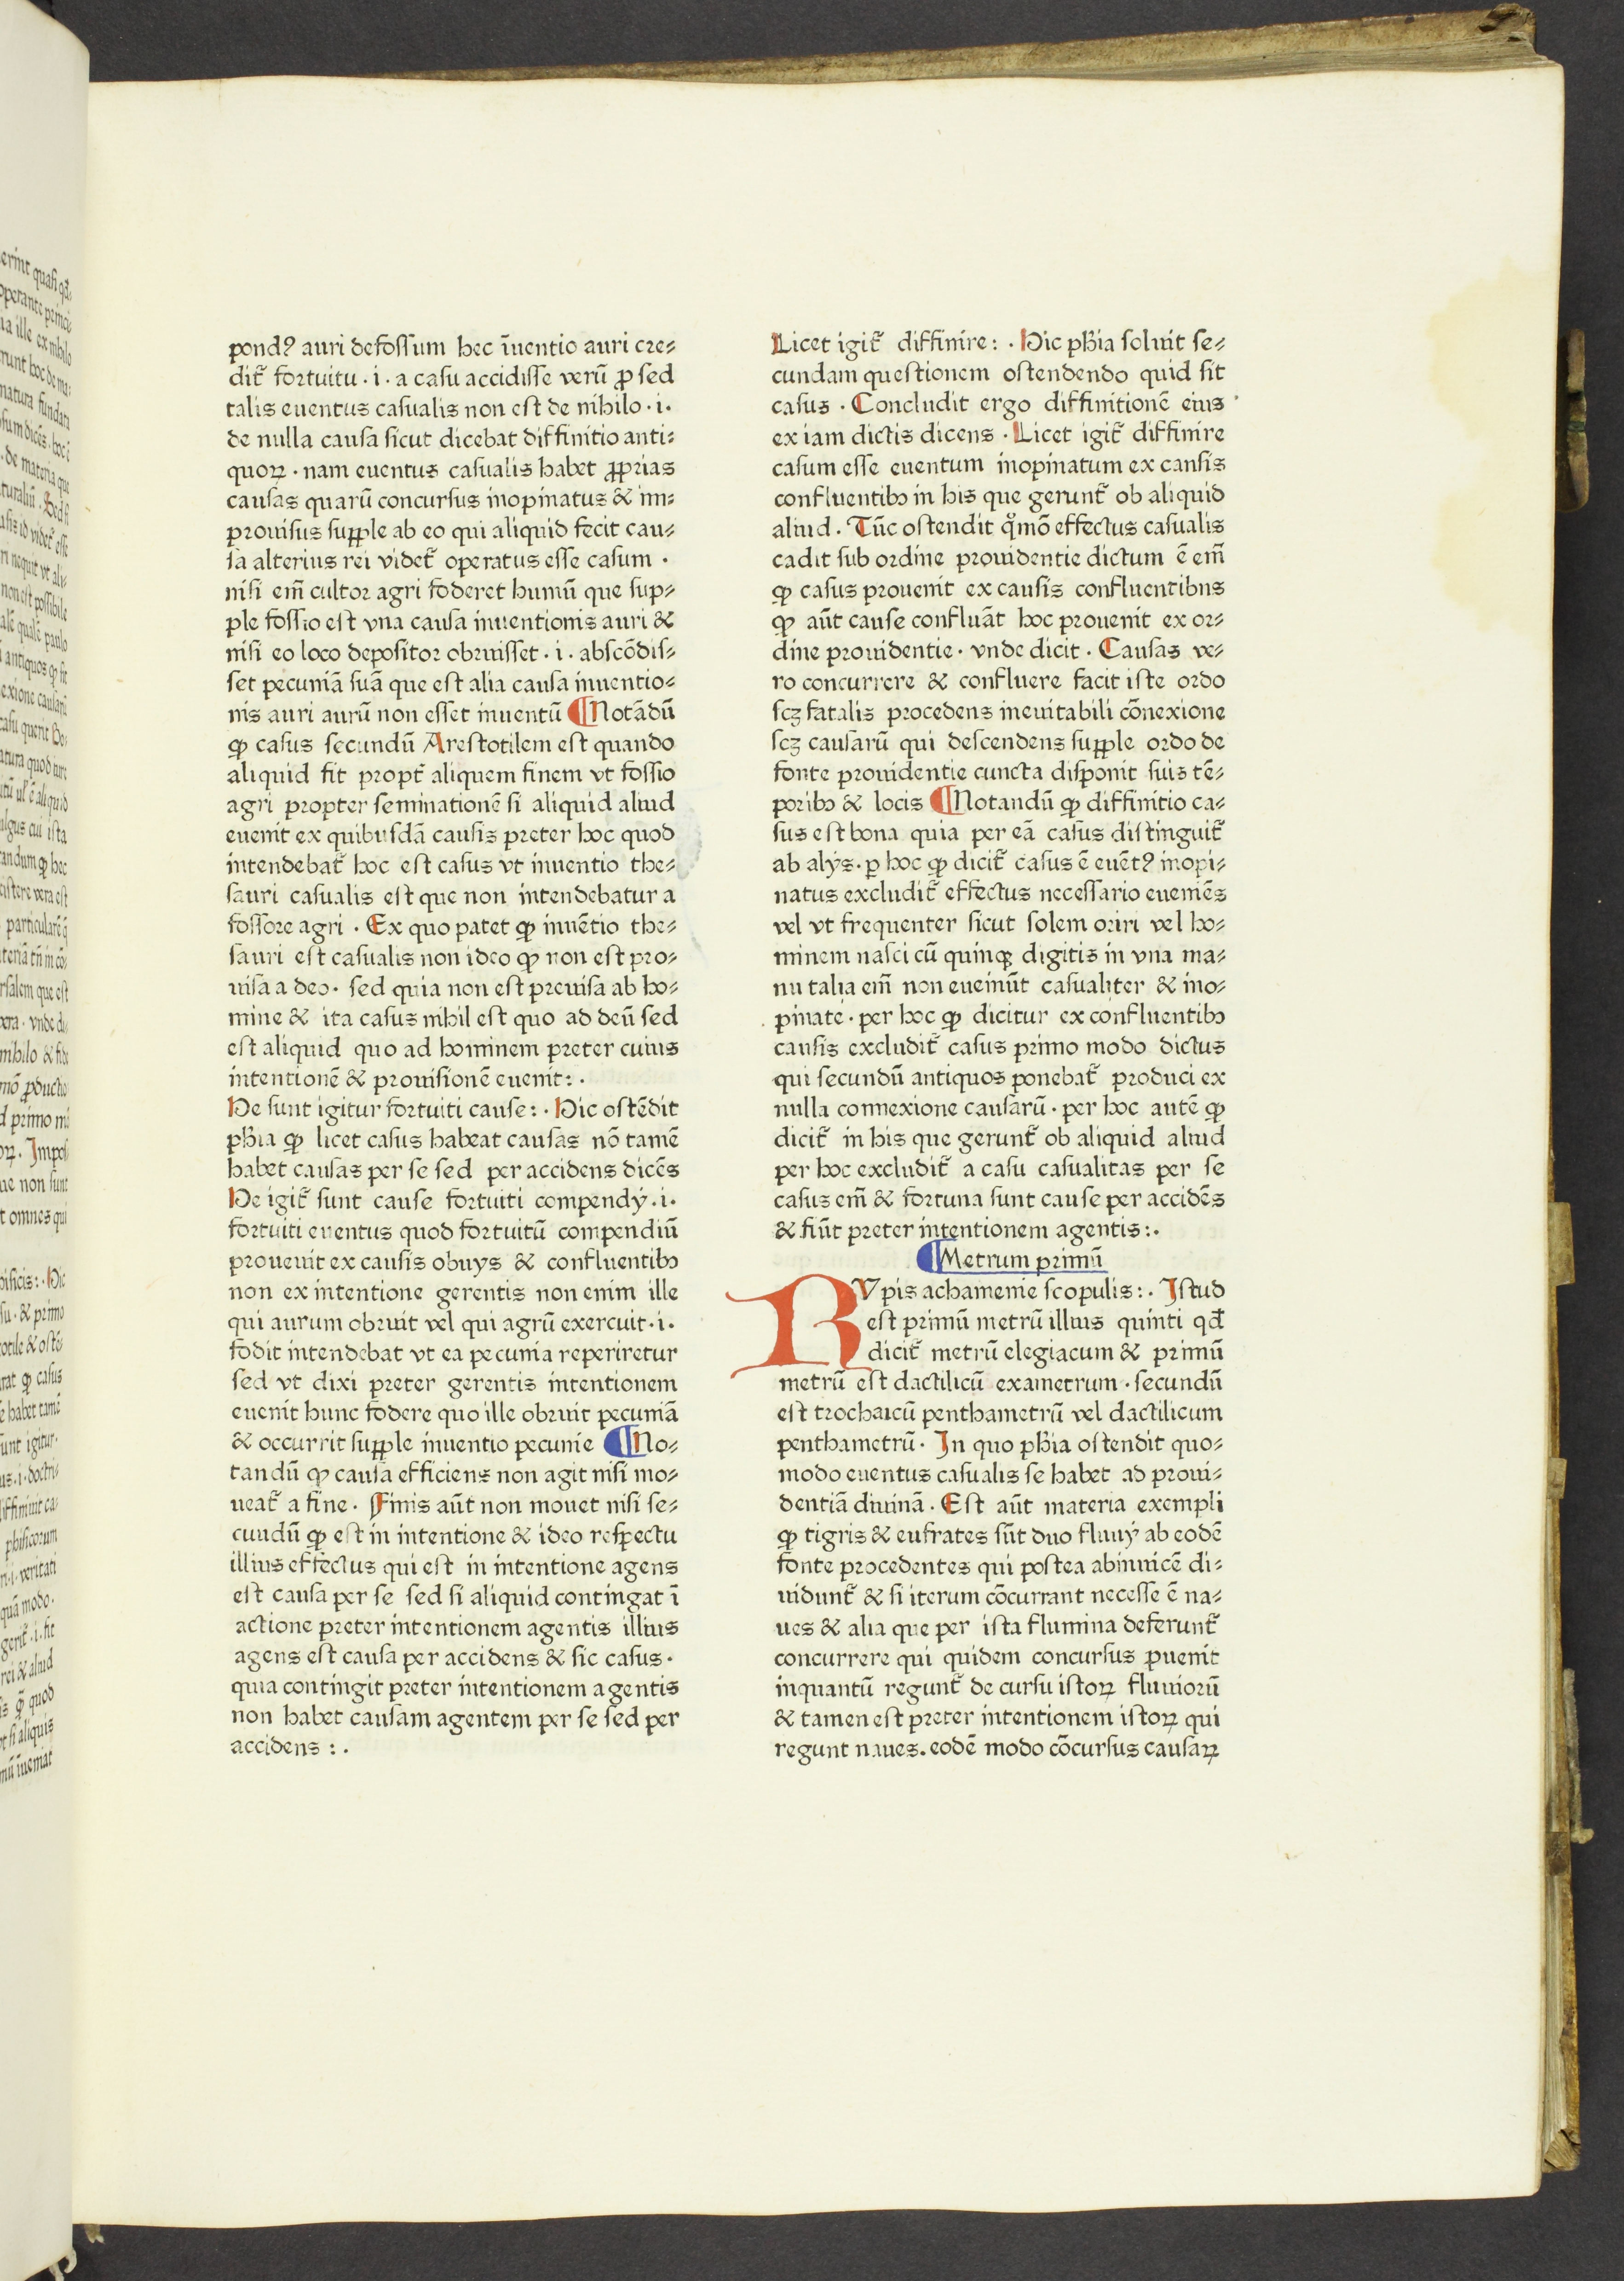 pondꝰ auri defossum hec ĩuentio auri cre⸗
dit᷑ fortuitu · i · a casu accidisse verũ ꝙ sed
talis euentus casualis non est de nihilo · i ·
de nulla causa sicut dicebat diffinitio anti⸗
quoꝝ · nam euentus casualis habet ꝓprias
causas quarũ concursus inopinatus & im⸗
prouisus supple ab eo qui aliquid fecit cau⸗
sa alterius rei videt᷑ operatus esse casum ·
nisi em̃ cultor agri foderet humũ que sup⸗
ple fossio est vna causa inuentionis auri &
nisi eo loco depositor obruisset · i · abscõdis⸗
set pecuniã suã que est alia causa inuentio⸗
nis auri aurũ non esset inuentũ ¶Notãdũ
ꝙ casus secundũ Arestotilem est quando
aliquid fit propt᷑ aliquem finem vt fossio
agri propter seminationẽ si aliquid aliud
euenit ex quibusdã causis preter hoc quod
intendebat᷑ hoc est casus vt inuentio the⸗
sauri casualis est que non intendebatur a
fossore agri · Ex quo patet ꝙ inuẽtio the⸗
sauri est casualis non ideo ꝙ non est pro⸗
uisa a deo · sed quia non est preuisa ab ho⸗
mine & ita casus nihil est quo ad deũ sed
est aliquid quo ad hominem preter cuius
intentionẽ & prouisionẽ euenit: ·
He sunt igitur fortuiti cause: · Hic ostẽdit
phĩa ꝙ licet casus habeat causas nõ tamẽ
habet causas per se sed per accidens dicẽs
He igit᷑ sunt cause fortuiti compendÿ · i ·
fortuiti euentus quod fortuitũ compendiũ
prouenit ex causis obuys & confluentibꝫ
non ex intentione gerentis non enim ille
qui aurum obruit vel qui agrũ exercuit · i ·
fodit intendebat vt ea pecunia reperiretur
sed vt dixi preter gerentis intentionem
euenit hunc fodere quo ille obruit pecuniã
& occurrit supple inuentio pecunie ¶No⸗
tandũ ꝙ causa efficiens non agit nisi mo⸗
ueat᷑ a fine · Finis aũt non mouet nisi se⸗
cundũ ꝙ est in intentione & ideo respectu
illius effectus qui est in intentione agens
est causa per se sed si aliquid contingat ĩ
actione preter intentionem agentis illius
agens est causa per accidens & sic casus ·
quia contingit preter intentionem agentis
non habet causam agentem per se sed per
accidens : ·
Licet igit᷑ diffinire: · Hic phĩa soluit se⸗
cundam questionem ostendendo quid sit
casus · Concludit ergo diffinitionẽ eius
ex iam dictis dicens · Licet igit᷑ diffinire
casum esse euentum inopinatum ex cansis
confluentibꝫ in his que gerunt᷑ ob aliquid
aliud · Tũc ostendit qͦmõ effectus casualis
cadit sub ordine prouidentie dictum ẽ em̃
ꝙ casus prouenit ex causis confluentibus
ꝙ aũt cause confluãt hoc prouenit ex or⸗
dine prouidentie · vnde dicit · Causas ve⸗
ro concurrere & confluere facit iste ordo
scꝫ fatalis procedens ineuitabili cõnexione
scꝫ causarũ qui descendens supple ordo de
fonte prouidentie cuncta disponit suis tẽ⸗
poribꝫ & locis ¶Notandũ ꝙ diffinitio ca⸗
sus est bona quia per eã casus distinguit᷑
ab alÿs · ꝑ hoc ꝙ dicit᷑ casus ẽ euẽtꝰ inopi⸗
natus excludit᷑ effectus necessario eueniẽs
vel vt frequenter sicut solem oriri vel ho⸗
minem nasci cũ quinqꝫ digitis in vna ma⸗
nu talia em̃ non eueniũt casualiter & ino⸗
pinate · per hoc ꝙ dicitur ex confluentibꝫ
causis excludit᷑ casus primo modo dictus
qui secundũ antiquos ponebat᷑ produci ex
nulla connexione causarũ · per hoc autẽ ꝙ
dicit᷑ in his que gerunt᷑ ob aliquid aliud
per hoc excludit᷑ a casu casualitas per se
casus em̃ & fortuna sunt cause per accidẽs
& fiũt preter intentionem agentis: ·
¶Metrum primũ
RVpis achamenie scopulis: · Istud
est primũ metrũ illius quinti qđ
dicit᷑ metrũ elegiacum & primũ
metrũ est dactilicũ exametrum · secundũ
est trochaicũ penthametrũ vel dactilicum
penthametrũ · In quo phĩa ostendit quo⸗
modo euentus casualis se habet ad proui⸗
dentiã diuinã · Est aũt materia exempli
ꝙ tigris & eufrates sũt duo fluuÿ ab eodẽ
fonte procedentes qui postea abinuicẽ di⸗
uidunt᷑ & si iterum cõcurrant necesse ẽ na⸗
ues & alia que per ista flumina deferunt᷑
concurrere qui quidem concursus ꝓuenit
inquantũ regunt᷑ de cursu istoꝝ fluuiorũ
& tamen est preter intentionem istoꝝ qui
regunt naues. eodẽ modo cõcursus causaꝝ